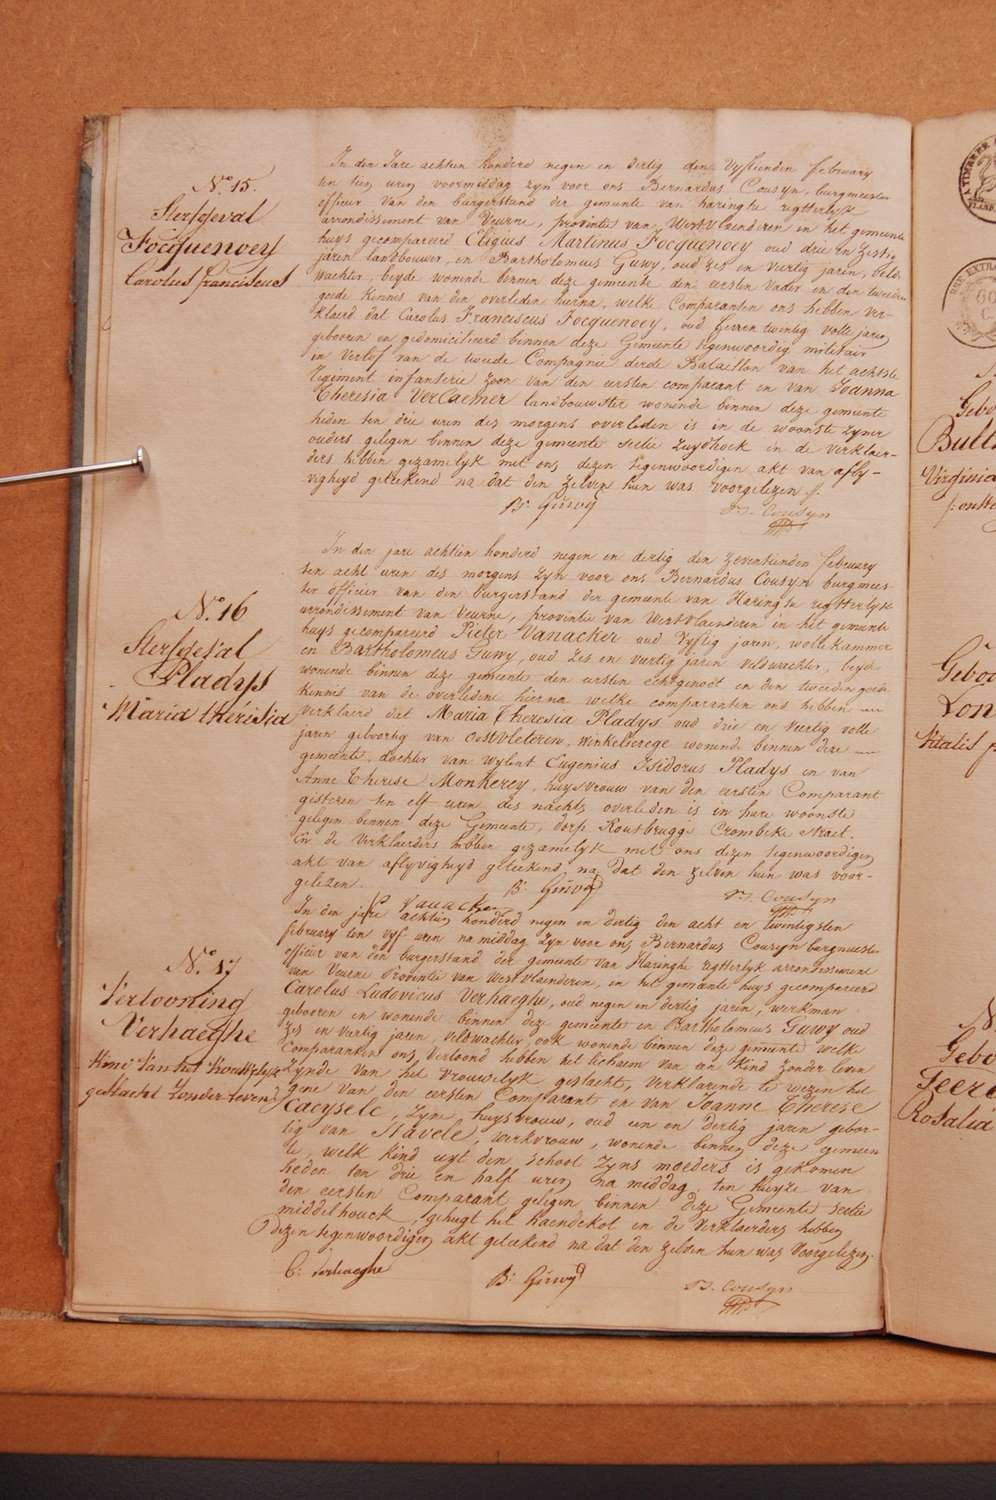 No 15.
Sterfgeval
Focquenoey
Carolus franciscus
In den Jare achtien honderd negen en dertig den Vyftienden february
ten tien uren voormiddag zyn voor ons Bernardus Cousyn, burgmeester
officier van den burgerstand der gemeente van haringhe regtterlyk
arrondissement van Veurne, provintie van Westvlaenderen in het gemeente
huys gecompareerd Eligius Martinus Focquenoey oud drie en Zestig
jaren landbouwer, en Bartholomeus Guwy, oud zes en viertig jaren, veld-
wachter, beyde wonende binnen deze gemeente den eersten vader en den tweeden
goede kennis van den overleden hierna, welke Comparanten ons hebben ver-
klaerd dat Carolus Franciscus Focquenoey, oud twintig volle jaren
gebooren en gedomicilieerd binnen deze Gemeente tegenwoordig militair
in verlof van de tweede Compagnie derde Bataillon van het achtste
Regiment infanterie zoon van den eersten comparant en van Joanna
Theresia Verlaemer landbouwster wonende binnen deze gemeente
heden ten drie uren des morgens overleden is in de woonste zyner
ouders gelegen binnen deze gemeente sectie Zuydhoek in de verklaer-
ders hebben gezamelyk met ons dezen tegenwoordigen akt van afly-
vigheyd geteekend na dat den zelven hun was voorgelezen
B: Guwy
B. Cousyn
No 16
Sterfgeval
Pladys
Maria thérésia
In den jare achtien honderd negen en dertig den zeventienden february
ten acht uren des morgens zyn voor ons Bernardus Cousyn burgmees-
ter officier van den burgerstand der gemeente van Haringhe regtterlyk
arrondissement van Veurne, provintie van Westvlaenderen in het gemeente
huys gecompareerd Pieter Vanacker oud Vyftig jaren, wollekammer
en Bartholomeus Guwy, oud zes en viertig jaren veldwachter, beyde
wonende binnen deze gemeente den eersten echtgenoot en den tweeden goede
kennis van de overledene hierna welke comparanten ons hebben
verklaerd dat Maria Theresia Pladys oud drie en veertig volle
jaren geboortig van Oostvleteren, winkelierege wonende binnen deze
gemeente, dochter van wylent Eugenius Isidorus Pladys en van
Anne Therese Monkerey, huysvrouw van den eersten Comparant
gisteren ten elf uren des nachts overleden is in hare woonste
gelegen binnen deze Gemeente, dorp Rousbrugge Crombeke straet.
en de verklaerders hebben gezamelyk met ons dezen tegenwoordigen
akt van aflyvigheyd geteekend na dat den zelven hun was voor-
gelezen.
B: Guwy
B. Cousyn
P Vanacker
No 17
Vertooning
Verhaeghe
Kind van het vrouwelyk
geslacht zonder leven
In den jare achtien honderd negen en dertig den acht en twintigsten
february ten vyf uren namiddag zyn voor ons Bernardus Cousyn burgmeester
officier van den burgerstand der gemeente van Haringhe regtterlyk arrondissement
van Veurne Provintie van Westvlaenderen, in het gemeente huys gecompareerd
Carolus Ludovicus Verhaeghe, oud negen en dertig jaren, werkman
gebooren en wonende binnen deze gemeente en Bartholomeus Guwy oud
zes en viertig jaren, veldwachter, ook wonende binnen deze gemeente welke
Comparanten ons vertoond hebben het lichaem van een kind zonder leven
zynde van het vrouwelyk geslacht, verklarende te wezen het
gene van den eersten Comparant en van Joanne Therese
Caeysele, zyne huysvrouw, oud een en dertig jaren geboor-
tig van Stavele, werkvrouw, wonende binnen deze gemeen
te, welk kind uyt den schoot zyns moeders is gekomen
heden ten drie en half uren na middag ten huyze van
den eersten Comparant gelegen binnen deze Gemeente sectie
middelhouck, gehugt het haendekot en de verklaerders hebben
dezen tegenwoordigen akt geteekend na dat den zelven hun was voorgelezen.
C: verhaeghe
B: Guwy
B. Cousyn
Gebo
Bull
Virginia
Geboo
Lon
Vitalis
Gebo
Feer
Rosalia